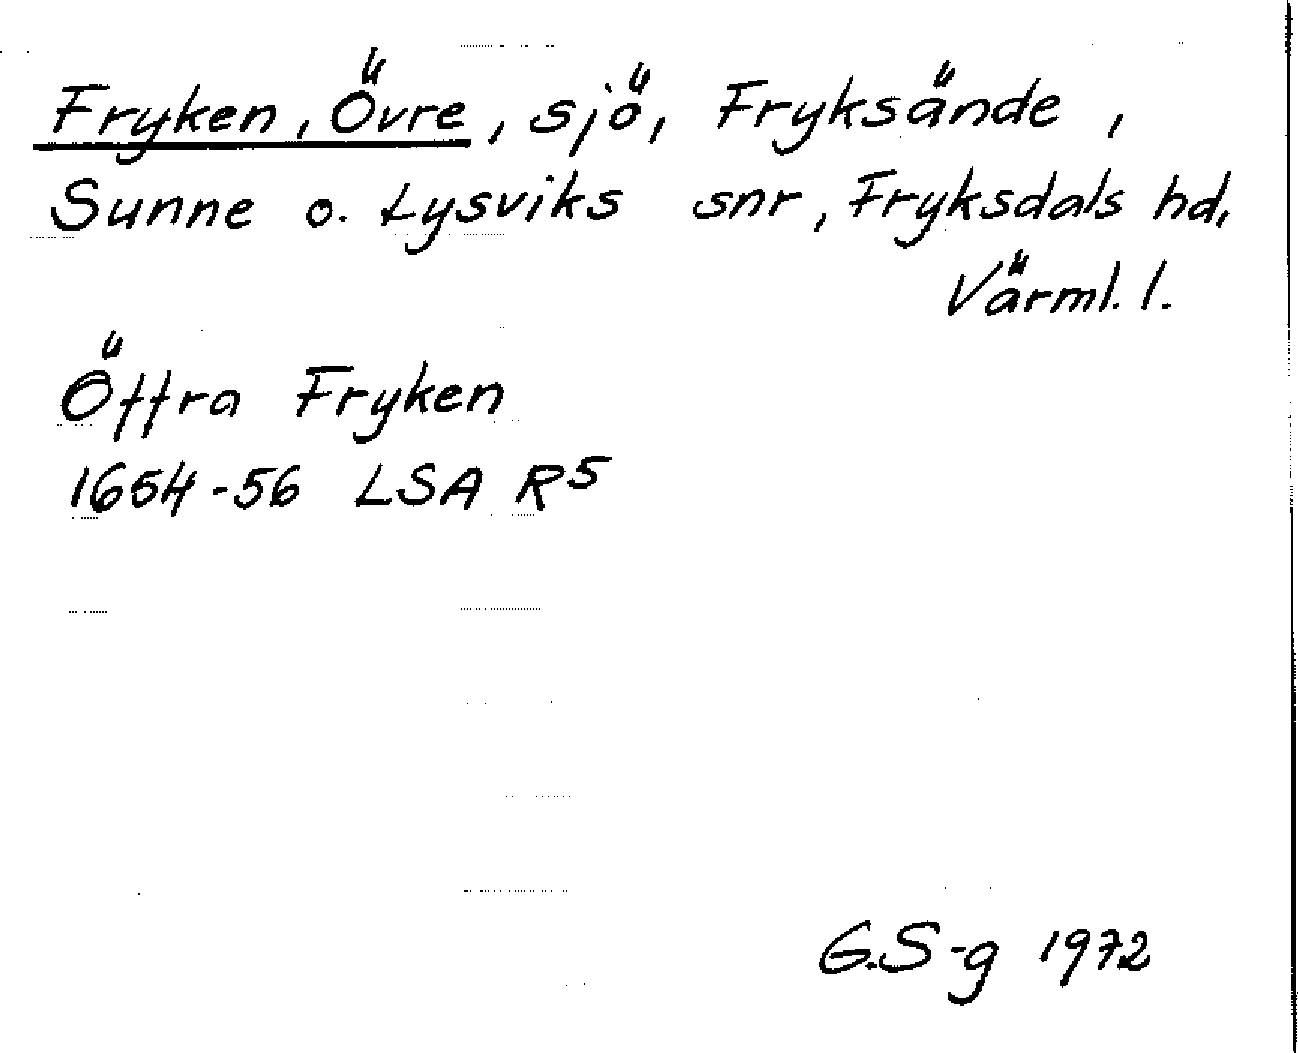 Fryken, Övre, sjö, Fryksände,
Sunne o. Lysviks snr, Fryksdals hd,
Värml. l.
Öffra Fryken
1654-56 LSA R5
G.S-g 1972